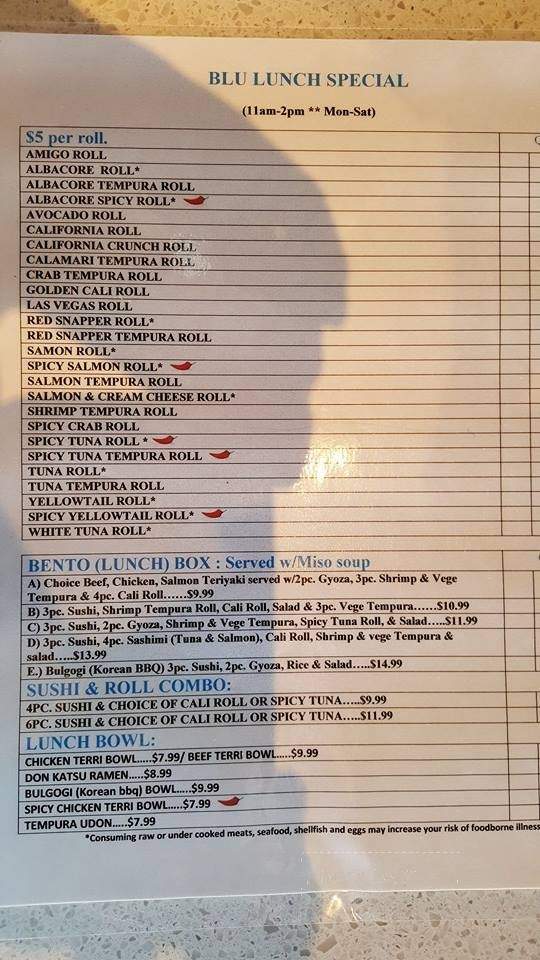 BLU LUNCH SPECIAL
(11am-2pm ** Mon-Sat)
$5 per roll.
AMIGO ROLL
ALBACORE ROLL*
ALBACORE TEMPURA ROLL
ALBACORE SPICY ROLL*
AVOCADO ROLL
CALIFORNIA ROLL
CALIFORNIA CRUNCH ROLL
CALAMARI TEMPURA ROLL
CRAB TEMPURA ROLL
GOLDEN CALI ROLL
LAS VEGAS ROLL
RED SNAPPER ROLL*
RED SNAPPER TEMPURA ROLL
SAMON ROLL*
SPICY SALMON ROLL*
SALMON TEMPURA ROLL
SALMON & CREAM CHEESE ROLL*
SHRIMP TEMPURA ROLL
SPICY CRAB ROLL
SPICY TUNA ROLL *
SPICY TUNA TEMPURA ROLL
TUNA ROLL*
TUNA TEMPURA ROLL
YELLOWTAIL ROLL*
SPICY YELLOWTAIL ROLL*
WHITE TUNA ROLL*
BENTO (LUNCH) BOX : Served w/Miso soup
A) Choice Beef, Chicken, Salmon Teriyaki served w/2pc. Gyoza, 3pc. Shrimp & Vege
Tempura & 4pc. Cali Roll......$9.99
B) 3pc. Sushi, Shrimp Tempura Roll, Cali Roll, Salad & 3pc. Vege Tempura......$10.99
C) 3pc. Sushi, 2pc. Gyoza, Shrimp & Vege Tempura, Spicy Tuna Roll, & Salad.....$11.99
D) 3pc. Sushi, 4pc. Sashimi (Tuna & Salmon), Cali Roll, Shrimp & vege Tempura &
salad.....$13.99
E.) Bulgogi (Korean BBQ) 3pc. Sushi, 2pc. Gyoza, Rice & Salad.....$14.99
SUSHI & ROLL COMBO:
4PC. SUSHI & CHOICE OF CALI ROLL OR SPICY TUNA.....$9.99
6PC. SUSHI & CHOICE OF CALI ROLL OR SPICY TUNA.....$11.99
LUNCH BOWL:
CHICKEN TERRI BOWL.....$7.99/ BEEF TERRI BOWL.....$9.99
DON KATSU RAMEN.....$8.99
BULGOGI (Korean bbq) BOWL.....$9.99
SPICY CHICKEN TERRI BOWL.....$7.99
TEMPURA UDON.....$7.99
*Consuming raw or under cooked meats, seafood, shellfish and eggs may increase your risk of foodborne illness